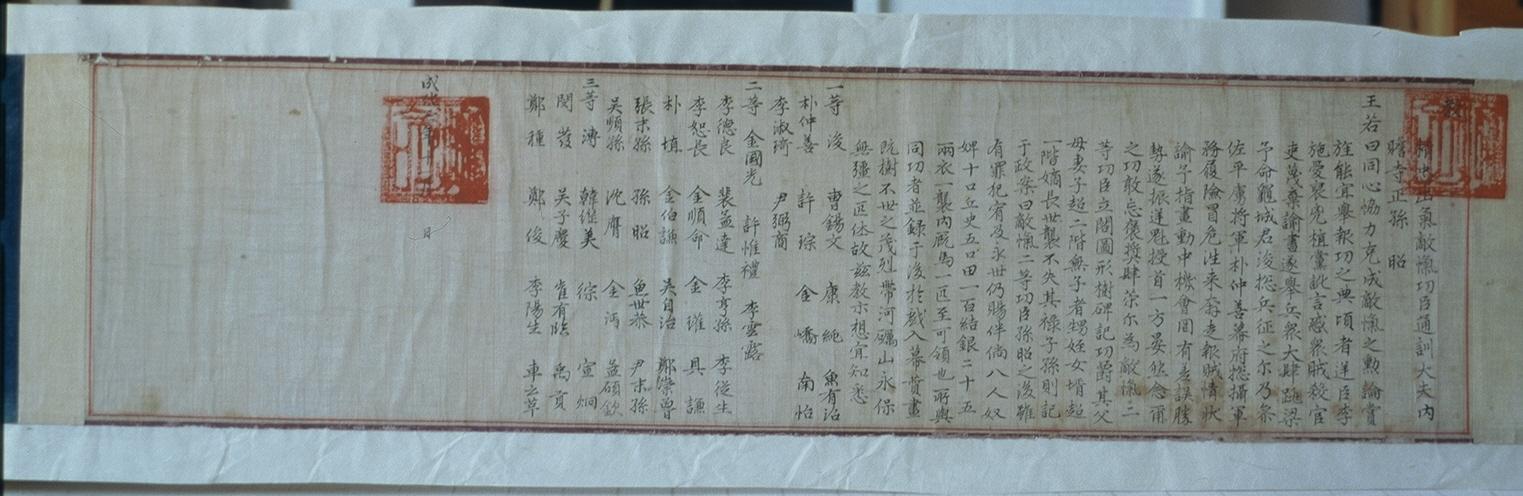 教
精忠出氣敵愾功臣通訓大夫內
贍寺正孫 昭
王若曰同心協力克成敵愾之勳論賞
旌能宜擧報功之典頃者逆臣李
施愛褱兇植黨訛言惑衆賊殺官
吏冀棄諭書遂擧兵衆大肆跳梁
予命龜城君浚捴兵征之尔乃叅
佐平虜將軍朴仲善幕府捴攝軍
務履險冒危往來奔走報賊情狀
諭予指畫動中機會罔有差誤勝
勢遂振逆魁授首一方晏然念爾
之功敢忘褒奬肆策尔為敵愾二
等功臣立閣圖形樹碑記功爵其父
母妻子超二階無子者甥姪女壻超
一階嫡長世襲不失其祿子孫則記
于政案曰敵愾二等功臣孫昭之後雖
有罪犯宥及永世仍賜伴倘八人奴
婢十口丘史五口田一百結銀二十五
兩衣一襲內廐馬一匹至可領也所與
同功者並録于後於戱入幕賛畫
既樹不世之茂烈帶河礪山永保
無疆之匹休故玆教示想宜知悉
一等 浚 曺錫文 康純 魚有沼
朴仲善 許琮 金嶠 南怡
李淑琦 尹弼商
二等 金國光 許惟禮 李雲露
李德良 裴孟達 李亨孫 李從生
李恕長 金順命 金瓘 具謙
朴埴 金伯謙 吳自治 鄭崇魯
張末孫 孫昭 魚世恭 尹末孫
吳順孫 沈膺 金沔 孟碩欽
三等 溥 韓繼美 綜 宣炯
閔發 吳子慶 崔有臨 禹貢
鄭種 鄭俊 李陽生 車云革
成化 年 月 日